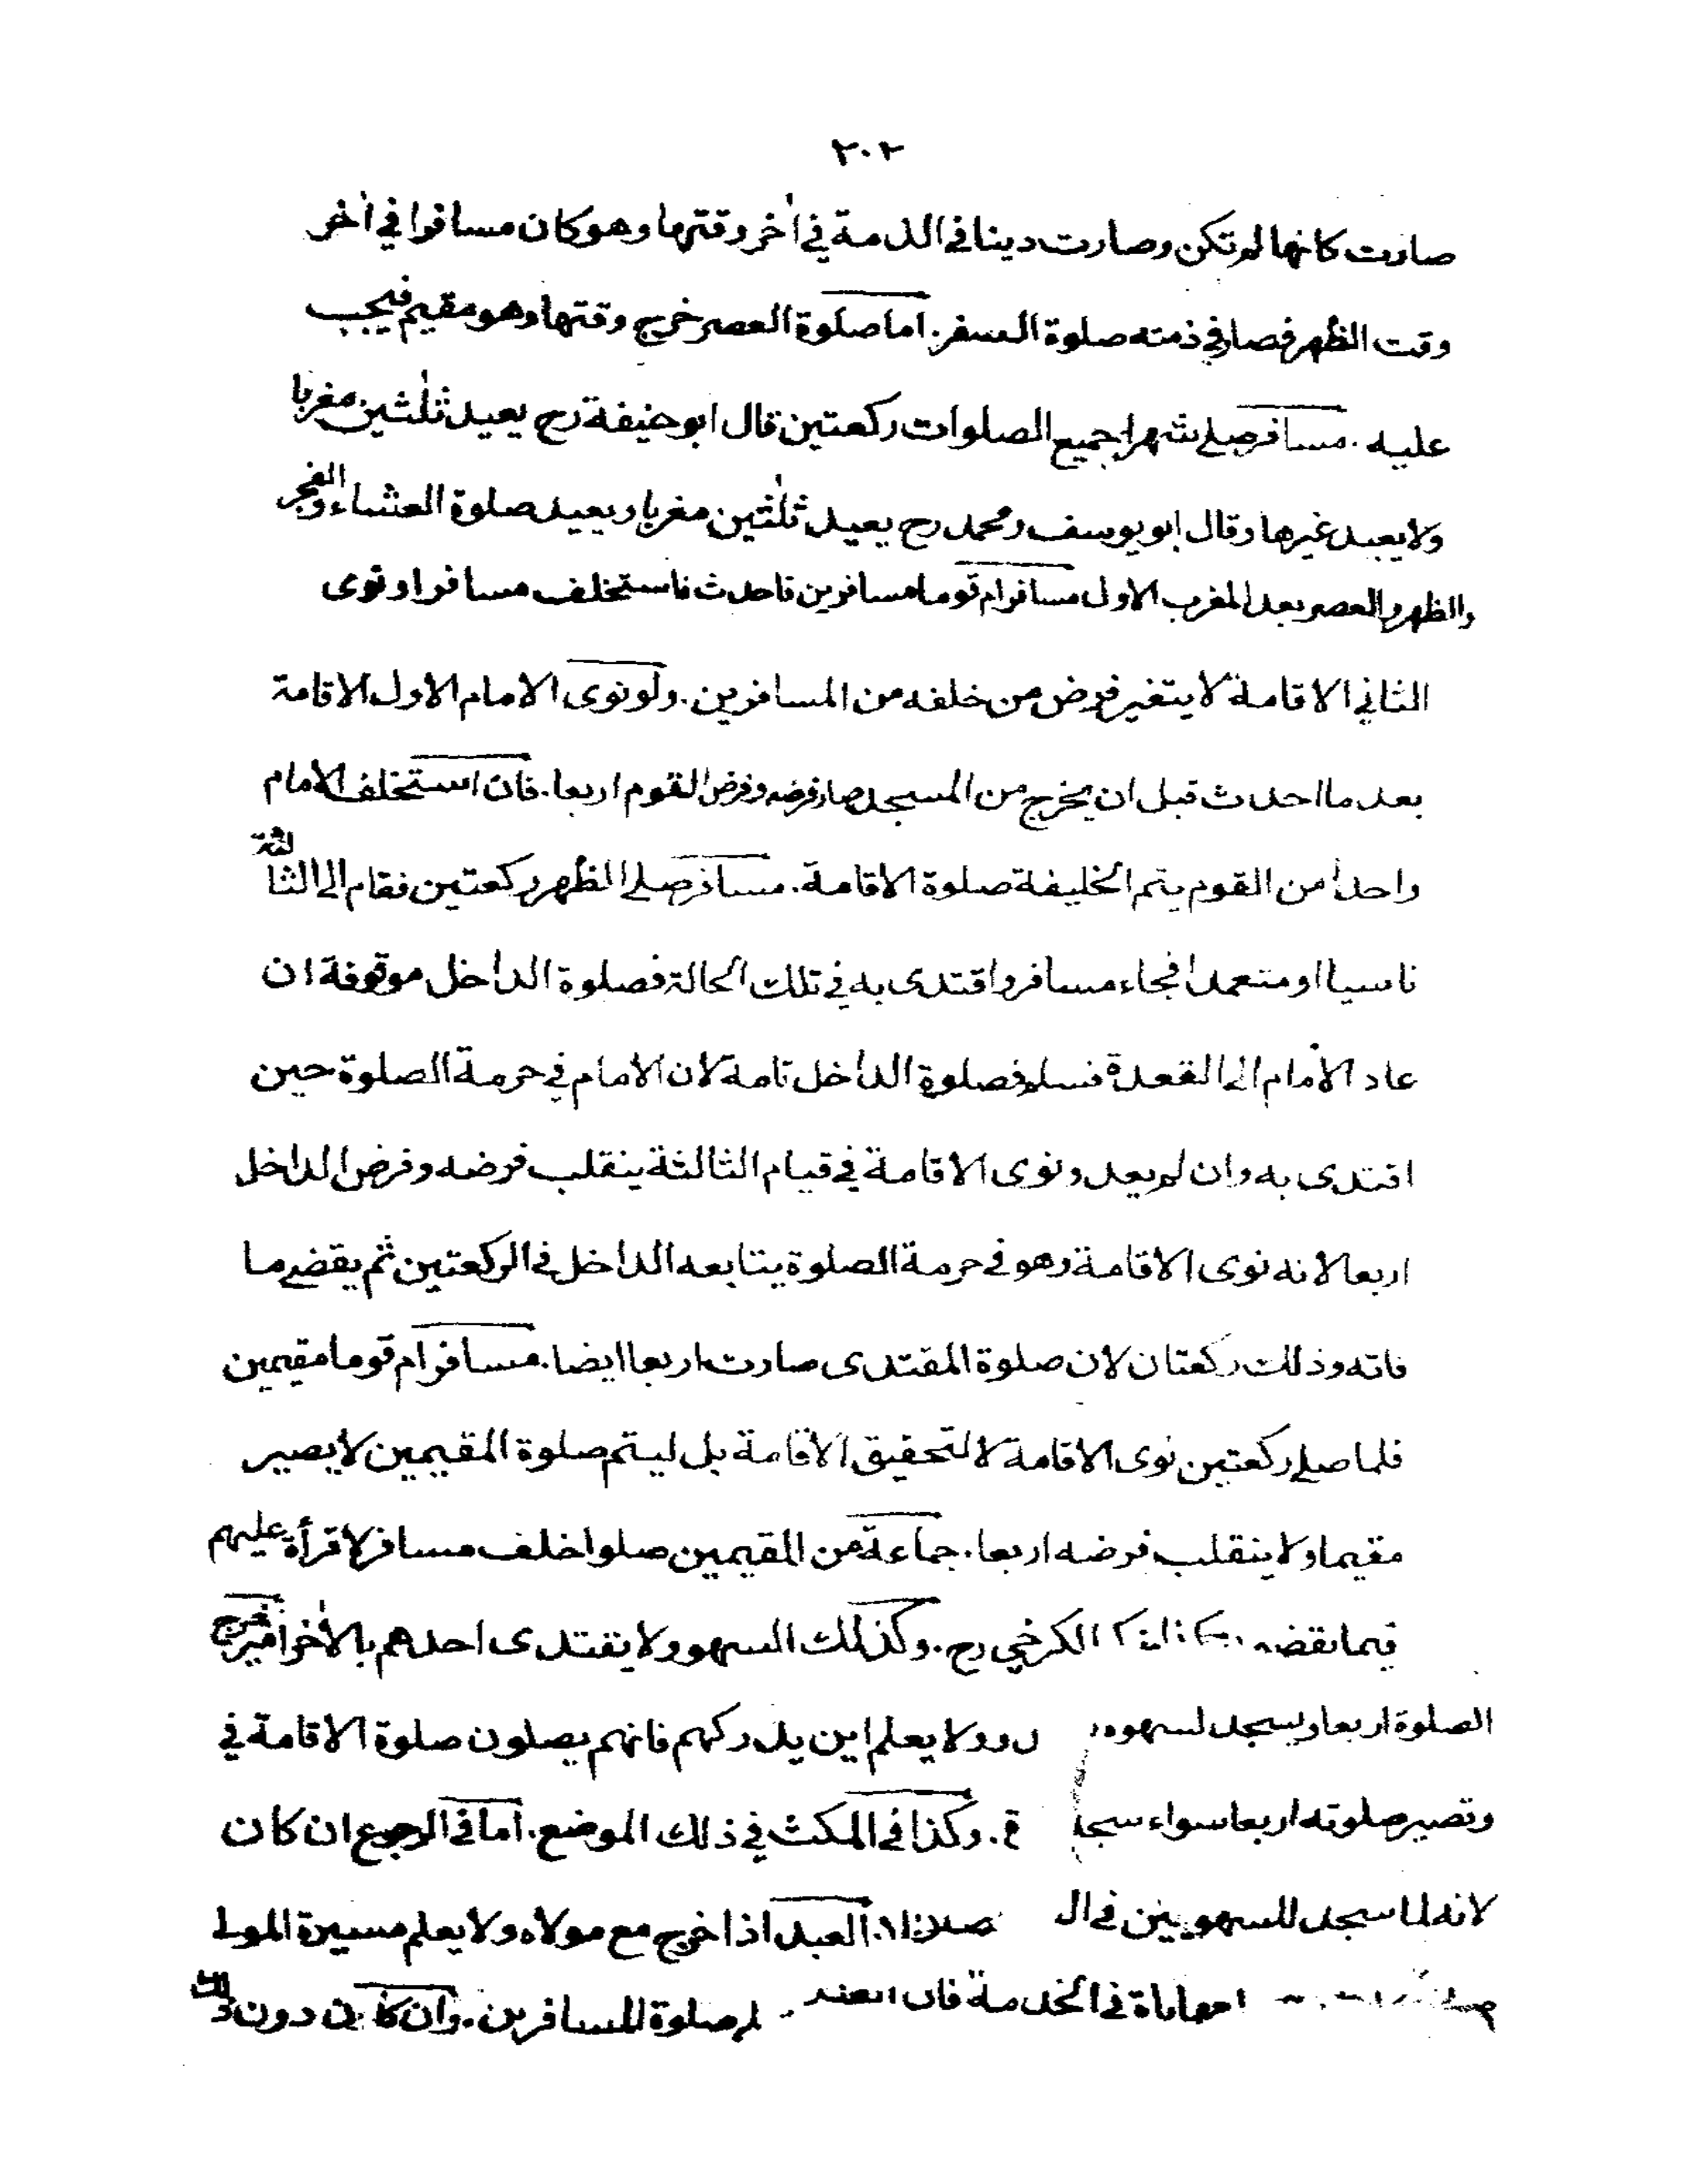 ٢٠٢
صارت كانها لم تكن وصارت دينا في الذمة في اٰخر وقتها وهو كان مسافرا في اٰخر
وقت الظهر فصار في ذمته صلوة السفر. اما صلوة العصر خرج وقتها وهو مقيم فيجب
عليه. مسافر صلے شهرا جميع الصلوات ركعتين قال ابو حنيفة رح يعيد ثلٰثين مغربا
ولا يعيد غيرها وقال ابو يوسف ومحمد رح يعيد ثلٰثين مغربا ويعيد صلوة العشاء والفجر
والظهر والعصر بعد المغرب الاول مسافر ام قوما مسافرين فاحدث فاستخلف مسافرا ونوى
الثاني الاقامة لا يتغير فرض من خلفه من المسافرين. ولو نوى الامام الاول الاقامة
بعد ما احدث قبل ان يخرج من المسجد صار فرضه وفرض القوم اربعا. فان استخلف الامام
واحدا من القوم يتم الخليفة صلوة الاقامة. مسافر صلے الظهر ركعتين فقام الى الثالثة
ناسيا او متعمدا فجاء مسافر واقتدى به في تلك الحالة فصلوة الداخل موقوفة ان
عاد الامام الى القعدة فسلم فصلوة الداخل تامة لان الامام في حرمة الصلوة حين
اقتدى به وان لم يعد ونوى الاقامة في قيام الثالثة ينقلب فرضه وفرض الداخل
اربعا لانه نوى الاقامة وهو في حرمة الصلوة يتابعه الداخل في الركعتين ثم يقضے ما
فاته وذلك ركعتان لان صلوة المقتدى صارت اربعا ايضا. مسافر ام قوما مقيمين
فلما صلے ركعتين نوى الاقامة لا لتحقيق الاقامة بل ليتم صلوة المقيمين لا يصير
مقيما ولا ينقلب فرضه اربعا. جماعة من المقيمين صلوا خلف مسافر لا قرأة عليهم
فيما الكرخي رح. وكذلك السهو ولا يقتدى احدهم بالاٰخر
الصلوة اربعا ويسجد لسهوه ولا يعلم اين يدركهم فانهم يصلون صلوة الاقامة في
وتصير صلوته اربعا سواء سجد وكذا في المكث في ذلك الموضع. اما في الرجوع ان كان
لانه لما سجد للسهو العبد اذا خرج مع مولاه ولا يعلم مسيرة المولى
في الخدمة فان صلوة المسافرين. وان كان دون ذلك